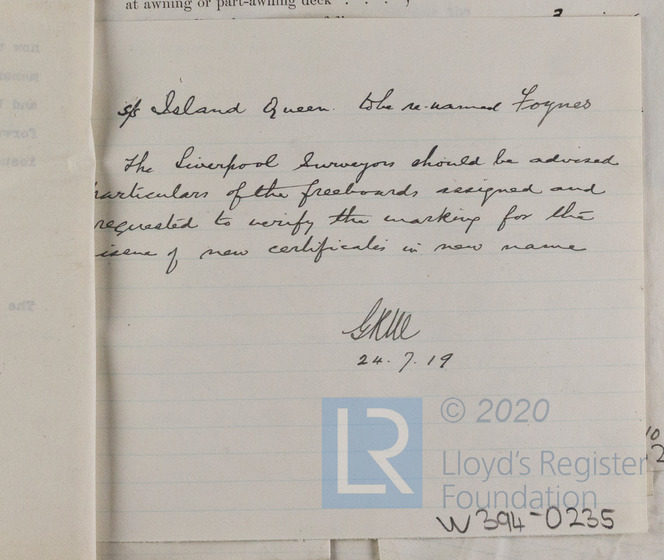 at awning or part-awning deck . . . ,
s/s Island Queen. to be re-named Foynes
The Liverpool Surveyors should be advised
particulars of the freeboards assigned and
requested to verify the marking for the
issue of new certificates in new name
24. 7. 19
The
LR
© 2020
Lloyd's Register
Foundation
W394-0235